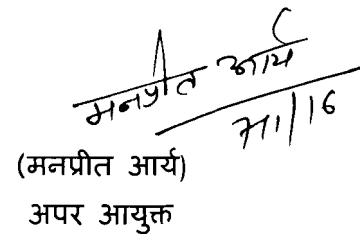 मनप्रीत आर्य
(मनप्रीत आर्य)
अपर आयुक्त